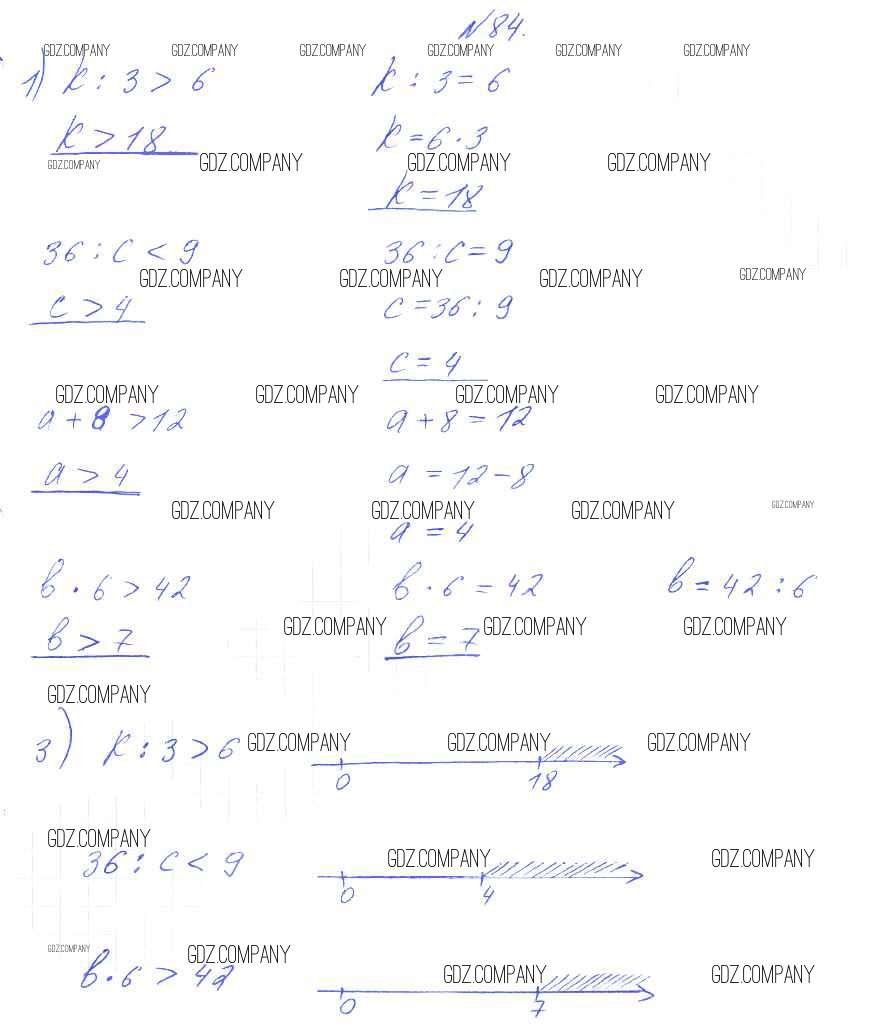 №84.
GDZ.COMPANY GDZ.COMPANY GDZ.COMPANY GDZ.COMPANY GDZ.COMPANY GDZ.COMPANY
1) k : 3 > 6 k : 3 = 6
k > 18 k = 6 · 3
GDZ.COMPANY GDZ.COMPANY GDZ.COMPANY GDZ.COMPANY
k = 18
36 : c < 9 36 : c = 9
GDZ.COMPANY GDZ.COMPANY GDZ.COMPANY GDZ.COMPANY
c > 4 c = 36 : 9
c = 4
GDZ.COMPANY GDZ.COMPANY GDZ.COMPANY GDZ.COMPANY
a + 8 > 12 a + 8 = 12
a > 4 a = 12 - 8
GDZ.COMPANY GDZ.COMPANY GDZ.COMPANY GDZ.COMPANY
a = 4
в · 6 > 42 в · 6 = 42 в = 42 : 6
GDZ.COMPANY GDZ.COMPANY GDZ.COMPANY
в > 7 в = 7
GDZ.COMPANY
3) k : 3 > 6 GDZ.COMPANY GDZ.COMPANY GDZ.COMPANY
0 18
GDZ.COMPANY
36 : c < 9 GDZ.COMPANY GDZ.COMPANY
0 4
GDZ.COMPANY GDZ.COMPANY
в · 6 > 42 GDZ.COMPANY GDZ.COMPANY
0 7